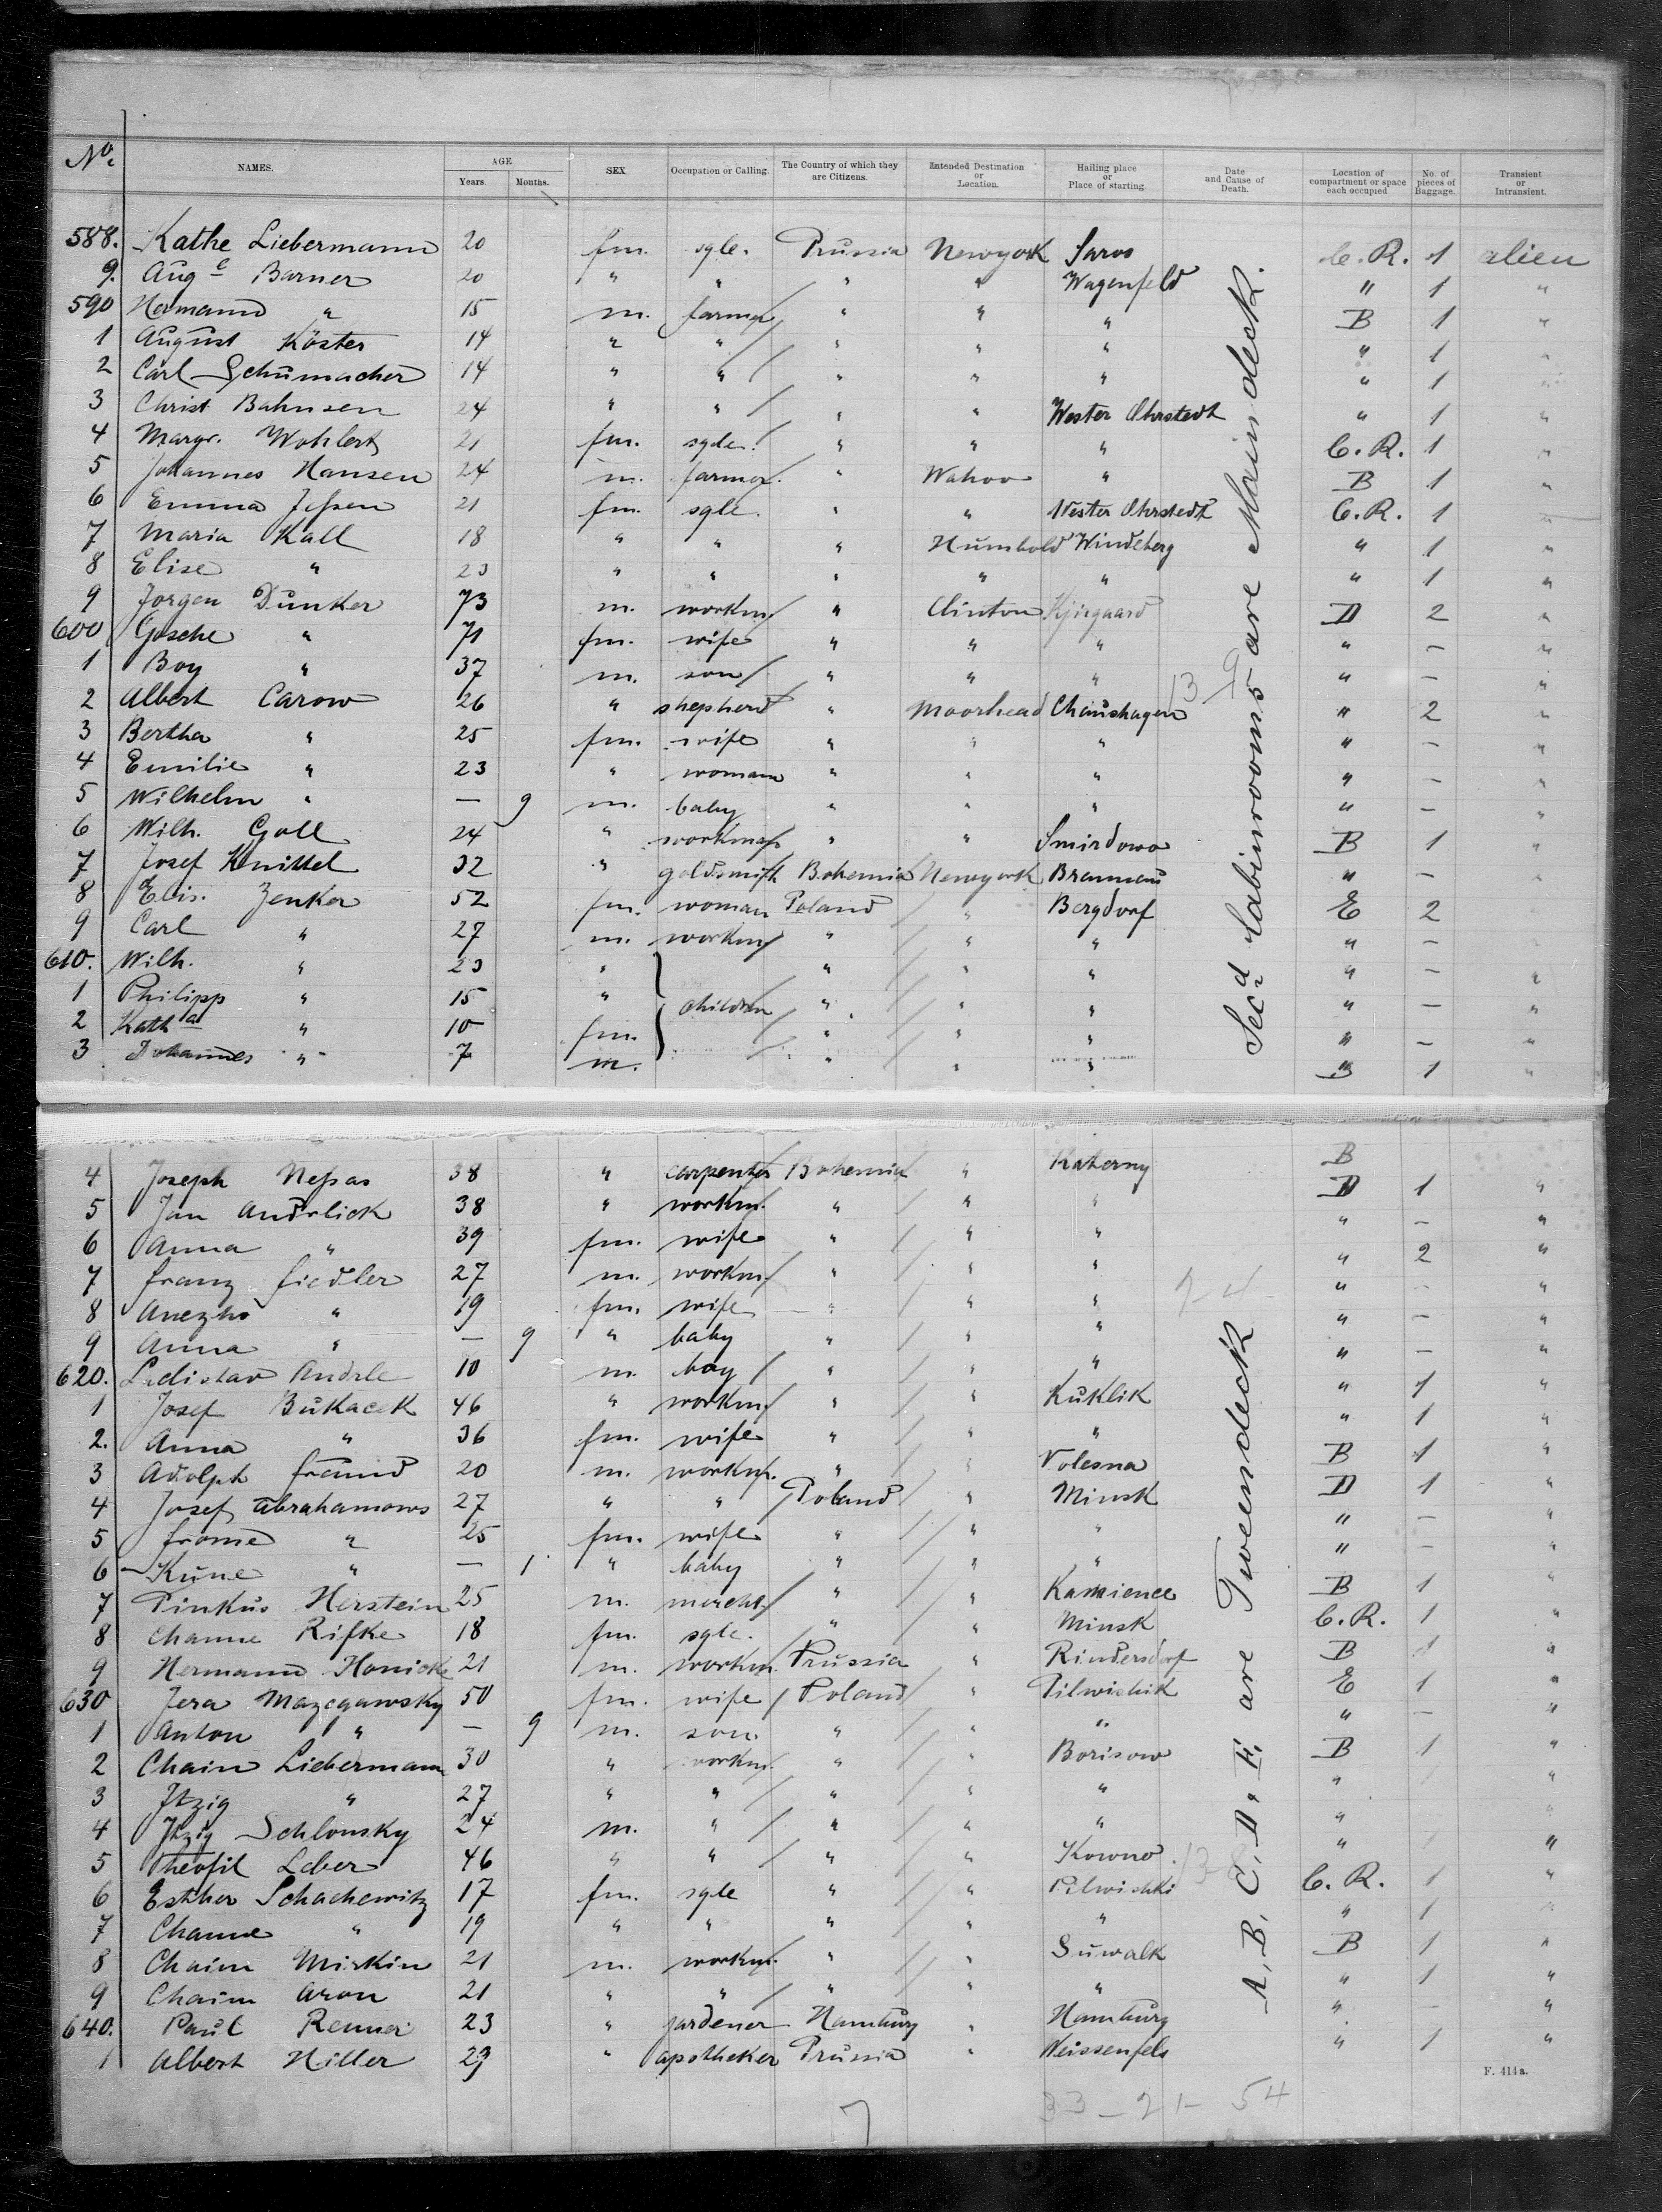 No. NAMES. AGE Years. Months. SEX Occupation or Calling. The Country of which they are Citizens. Intended Destination or Location. Hailing place or Place of starting. Date and Cause of Death. Location of compartment or space each occupied No. of pieces of Baggage. Transient or Intransient.
588. Kathe Liebermann 20 fm. sgle. Prussia Newyork Saros C.R. 1 alien
9. Auge Barner 20 " " " " Wagenfeld " 1 "
590 Hermann " 15 m. farmer " " " B 1 "
1 August Köster 14 " " " " " " 1 "
2 Carl Schumacher 14 " " " " " " 1 "
3 Christ Bahnsen 24 " " " " Wester Ohrstedt " 1 "
4 Margr. Wohlert 21 fm. sgle. " " " C.R. 1 "
5 Johannes Hansen 24 m. farmer. " Wahoo " B 1 "
6 Emma Jessen 21 fm. sgle. " " Wester Ohrstedt C.R. 1 "
7 Maria Kall 18 " " " Humbold Windeberg " 1 "
8 Elise " 23 " " " " " " 1 "
9 Jorgen Dunker 73 m. workm " Clinton Kjirgaard D 2 "
600 Gosche " 71 fm. wife " " " " – "
1 Boy " 37 m. son " " " " – "
2 Albert Carow 26 " shepherd " Moorhead Chaushagen " 2 "
3 Bertha " 25 fm. wife " " " " – "
4 Emilie " 23 " woman " " " " – "
5 Wilhelm " — 9 m. baby " " " " – "
6 Wilh. Goll 24 " workman " " Smirdowo B 1 "
7 Josef Knittel 32 " goldsmith Bohemia Newyork Braunau " – "
8 Elis. Zenker 52 fm. woman Poland " Bergdorf E 2
9 Carl " 27 m. workm " " " " –
610. Wilh. " 23 " " " " " – "
1 Philipp " 15 " children " " " " – "
2 Katha " 10 fm. " " " " – "
3 Johannes " 7 m. " " " " 1 "
Secd Cabinrooms are Maindeck.
4 Joseph Nessas 38 " carpenter Bohemia " Katerny B
5 Jan Andrlick 38 " workm. " " " D 1 "
6 Anna " 39 fm. wife " " " " – "
7 Franz Fiedler 27 m. workm " " " " 2 "
8 Anezho " 19 fm. wife " " " " – "
9 Anna " — 9 " baby " " " " – "
620. Ladislav Andrle 10 m. boy " " " " – "
1 Josef Bukacek 46 " workm " " Kuklik " 1 "
2. Anna " 36 fm. wife " " " " 1 "
3 Adolph Fraund 20 m. workm. " " Volesna B 1 "
4 Josef Abrahamows 27 " " Poland " Minsk D 1 "
5 Frome " 25 fm. wife " " " " – "
6 Kune " — 1 " baby " " " " – "
7 Pinkus Herstein 25 m. mercht. " " Kamience B 1 "
8 Channe Rifke 18 fm. sgle. " " Minsk C.R. 1 "
9 Hermann Honicke 21 m. workm. Prussia " Rindersdorf B 1 "
630 Jera Mazegawsky 50 fm. wife Poland " Pilwishik E 1 "
1 Anton " — 9 m. son " " " " – "
2 Chain Liebermann 30 " workm. " " Borisow B 1 "
3 Itzig " 27 " " " " " " "
4 Itzig Schlonsky 24 m. " " " " " "
5 Theofil Leber 46 " " " " Kowno. " "
6 Esther Schachewitz 17 fm. sgle " " Pilwishki C.R. 1 "
7 Channe " 19 " " " " " " 1 "
8 Chaim Mirkin 21 m. workm. " " Suwalk B 1 "
9 Chaim Aron 21 " " " " " " 1 "
640. Paul Renner 23 " gardener Hamburg " Hamburg " – "
1 Albert Hiller 29 " apotheker Prussia " Weissenfels " 1 "
A, B, C, D, E, are Tweendeck
F. 414a.
7 33 – 21 – 54